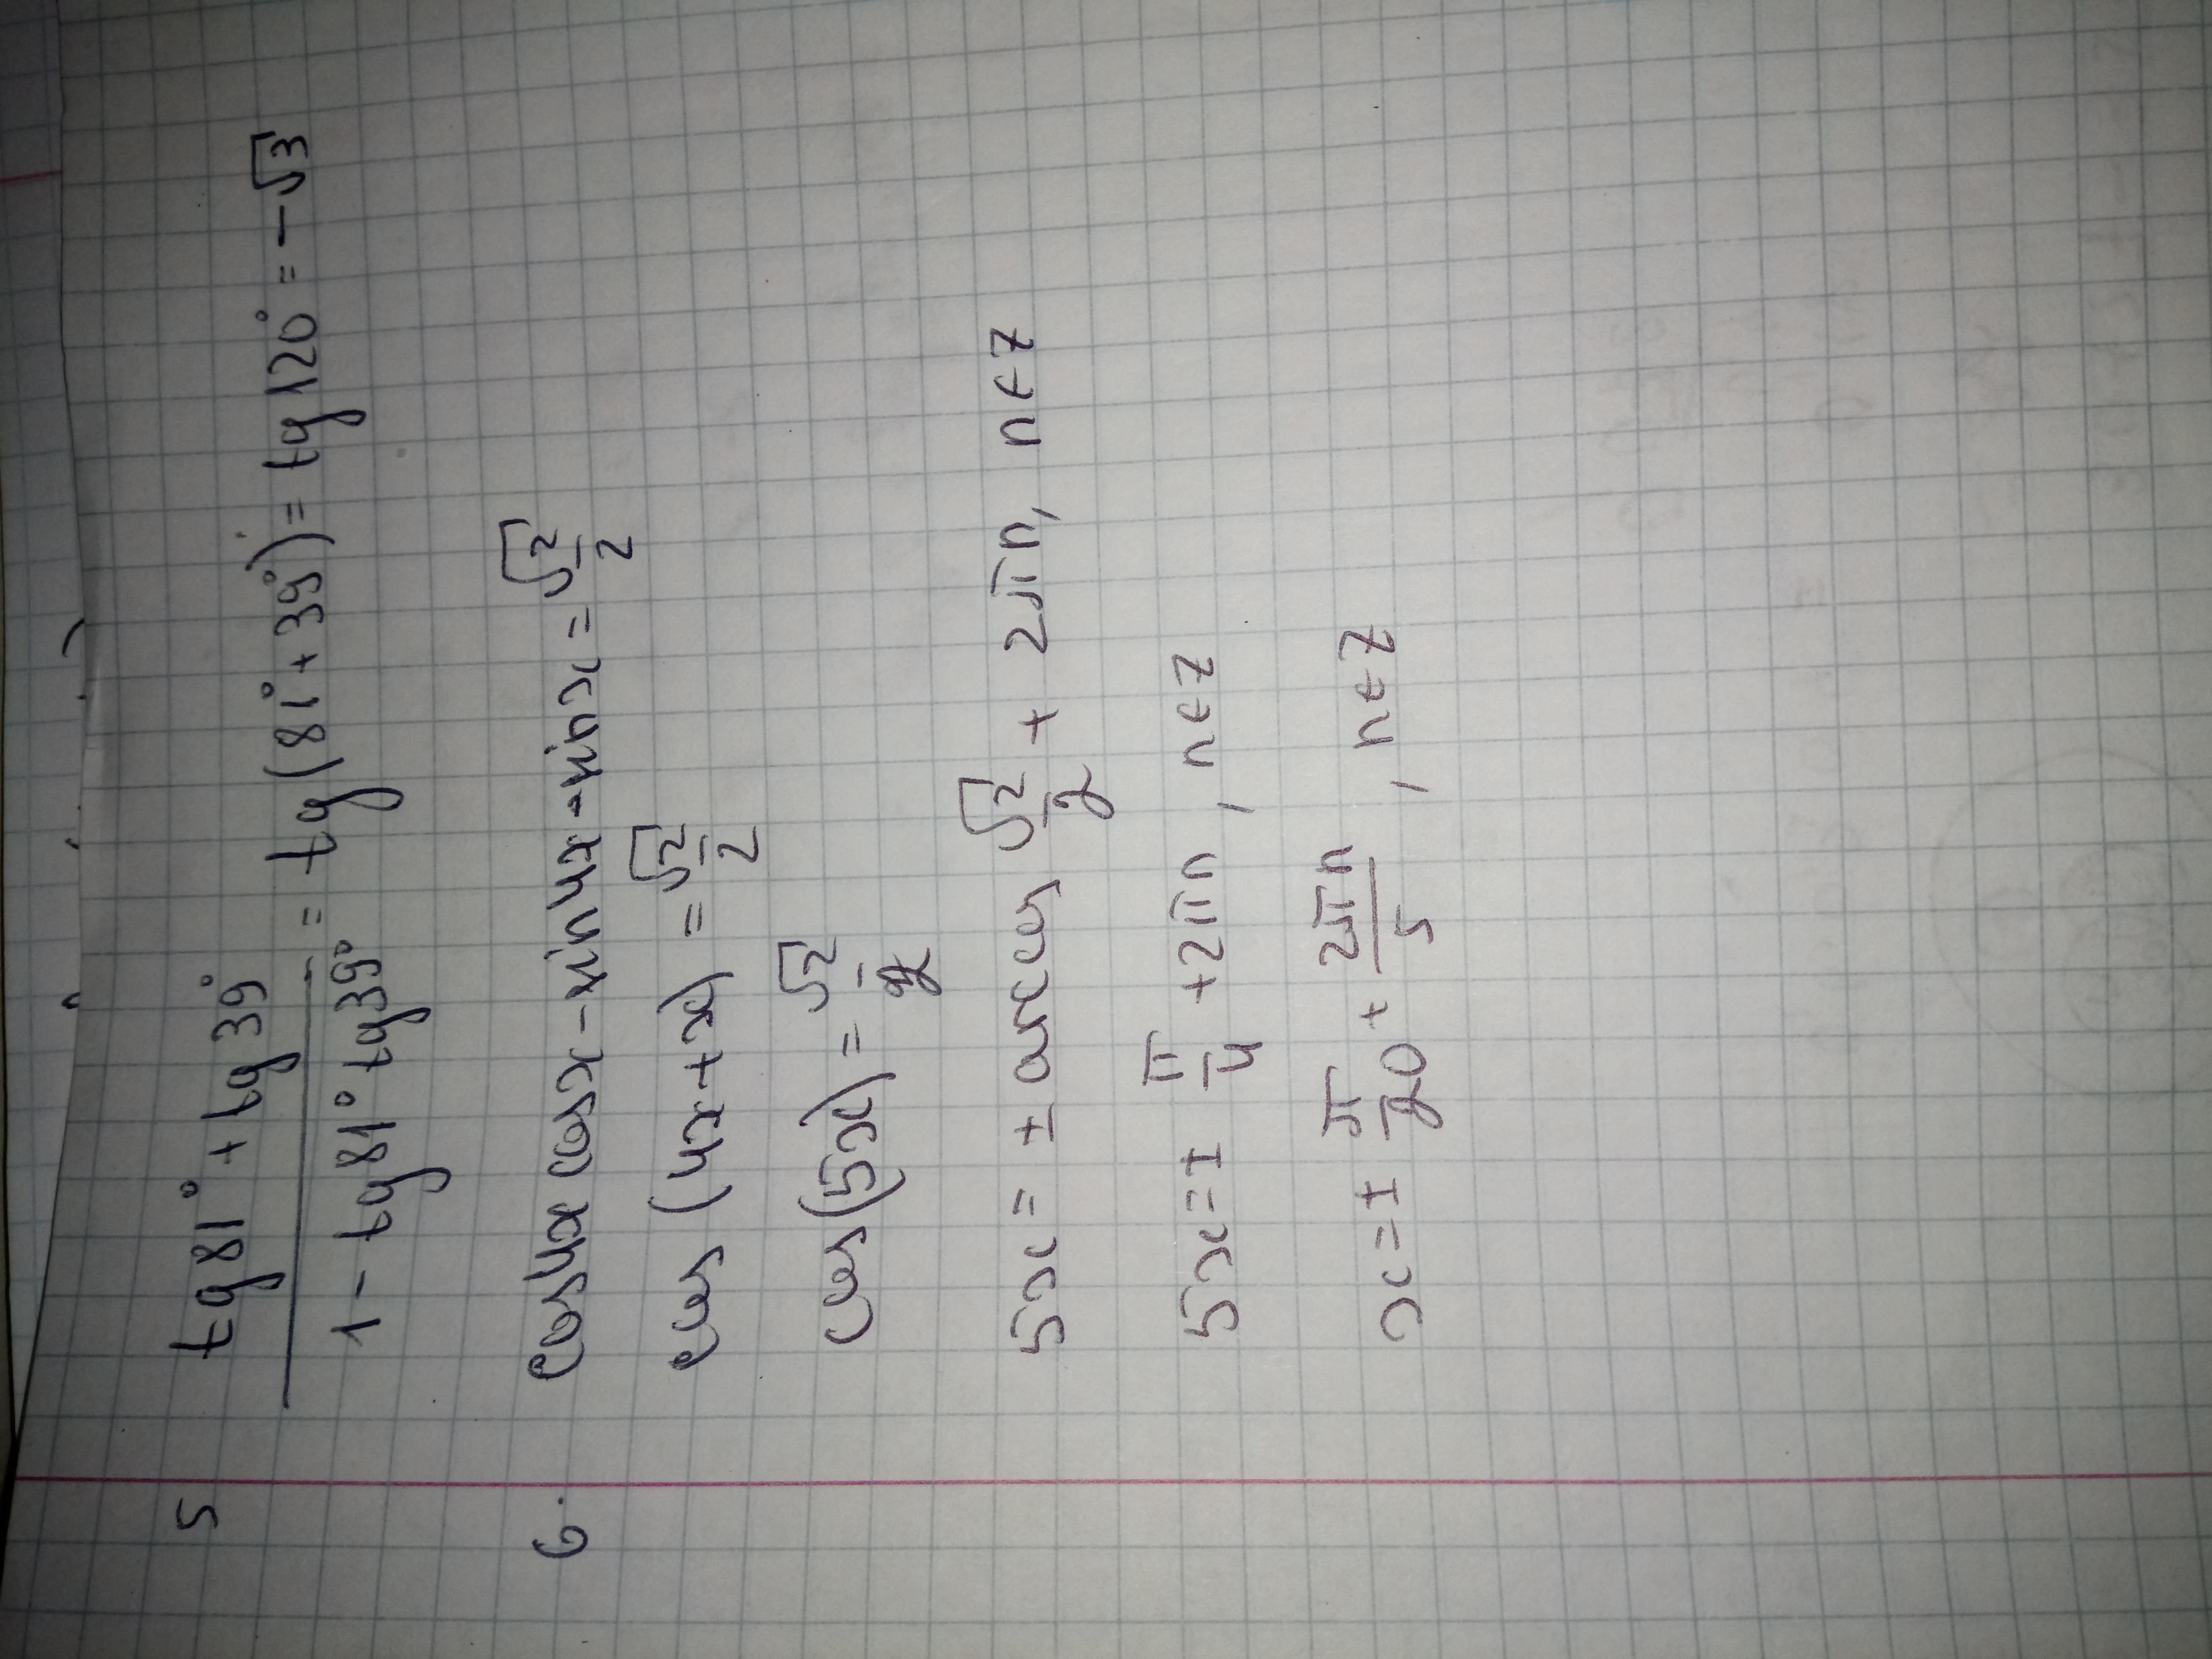 5 tg81° + tg39° / 1 - tg81° tg39° = tg(81° + 39°) = tg120° = -√3
6. cos4x cosx - sin4x · sinx = √2/2
cos(4x + x) = √2/2
cos(5x) = √2/2
5x = ± arccos √2/2 + 2πn, n∈Z
5x = ± π/4 + 2πn, n∈Z
x = ± π/20 + 2πn/5, n∈Z